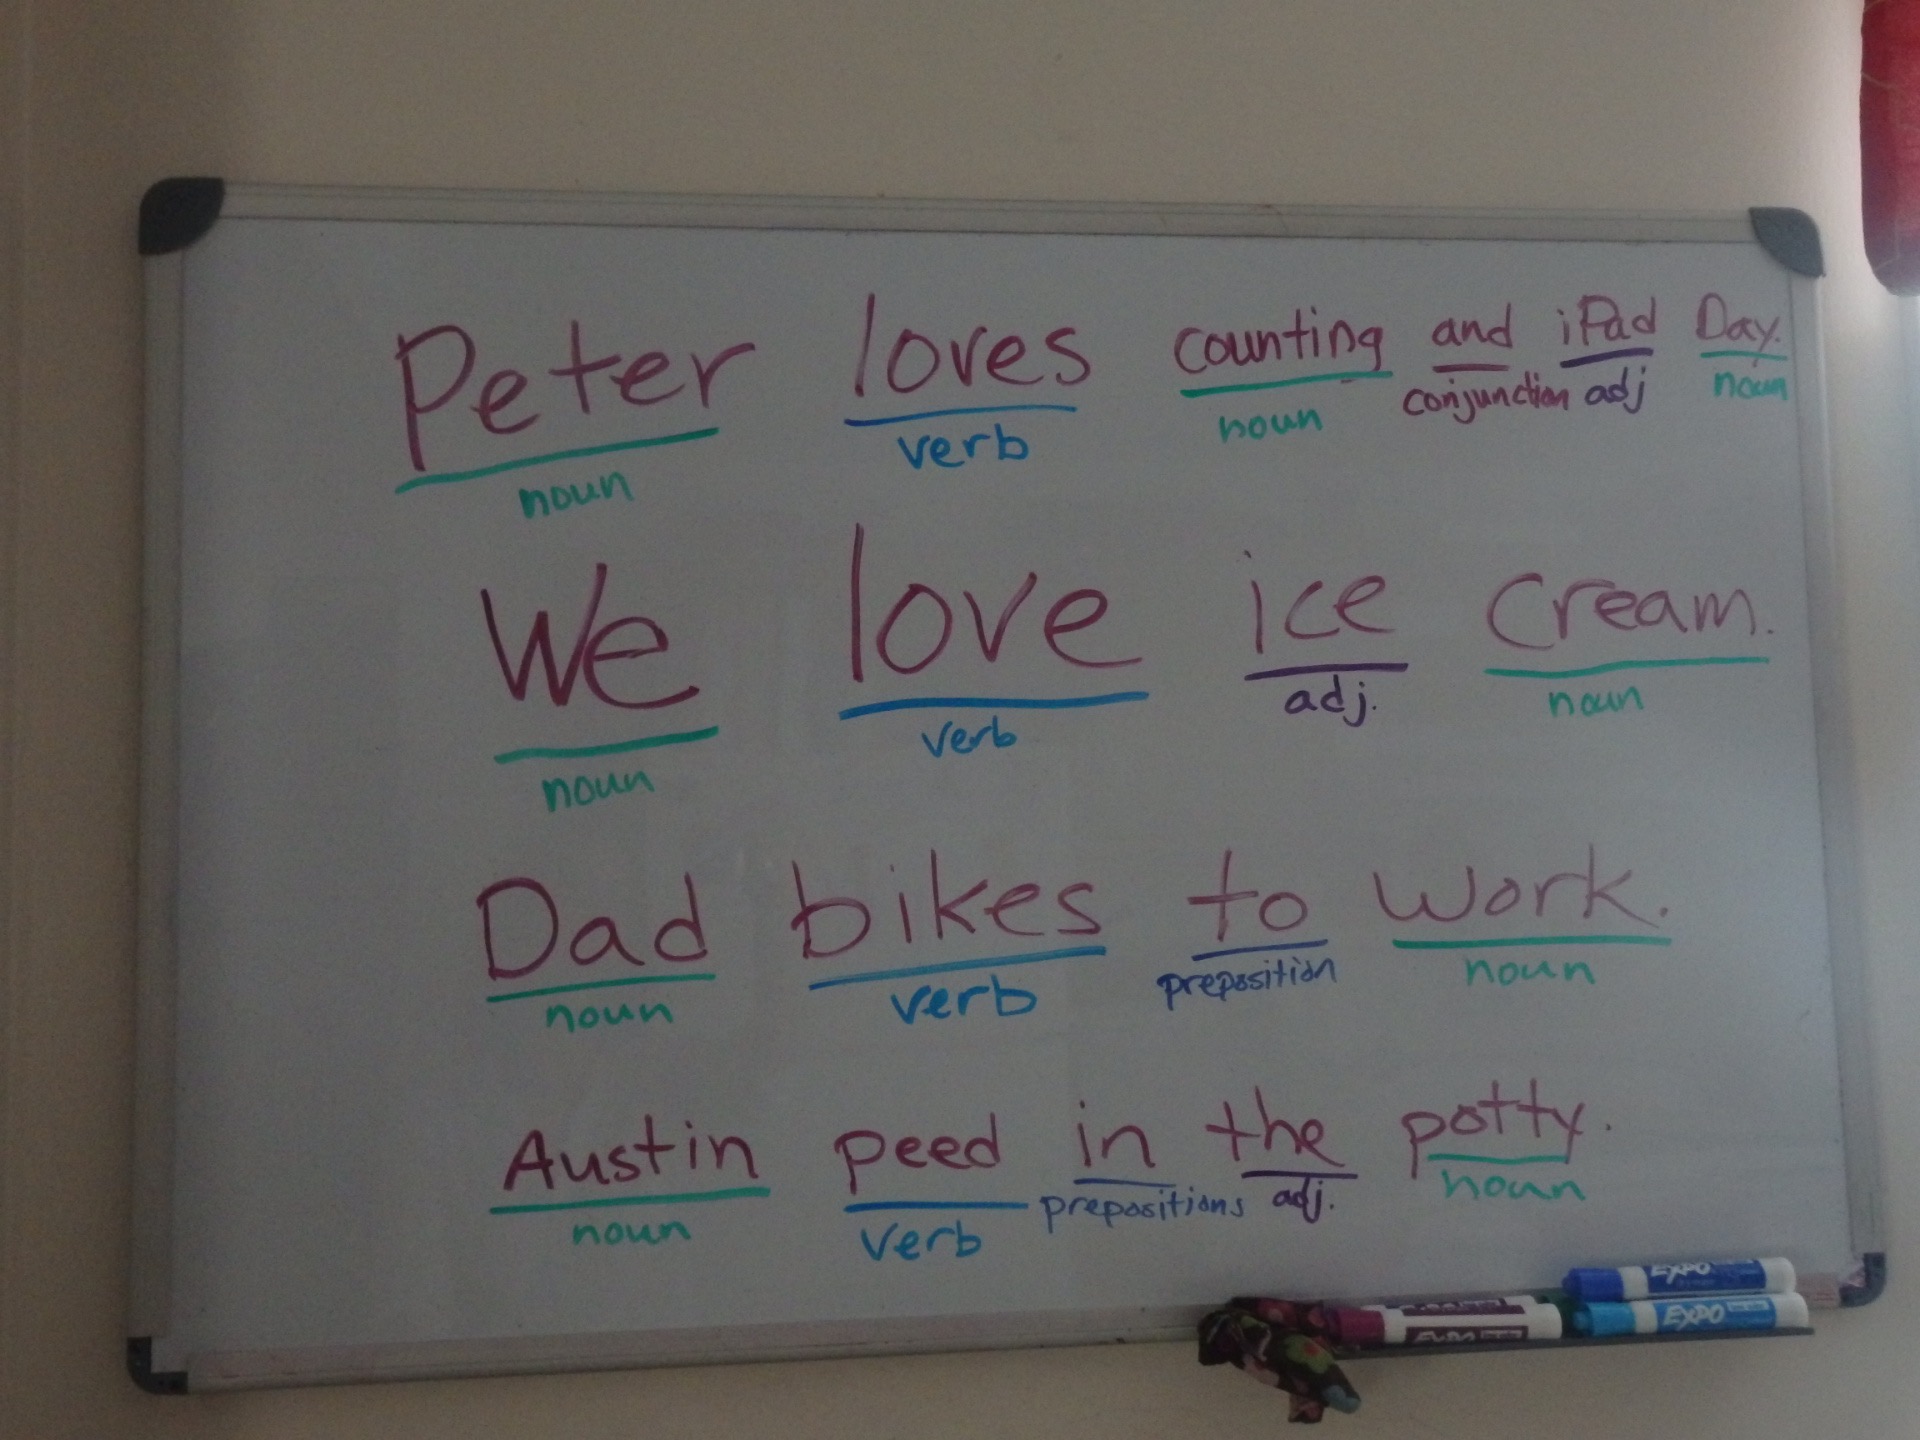 Peter loves counting and iPad Day.
noun verb noun conjunction adj noun
We love ice cream.
noun verb adj. noun
Dad bikes to work.
noun verb preposition noun
Austin peed in the potty.
noun verb prepositions adj. noun
EXPO
EXPO EXPO